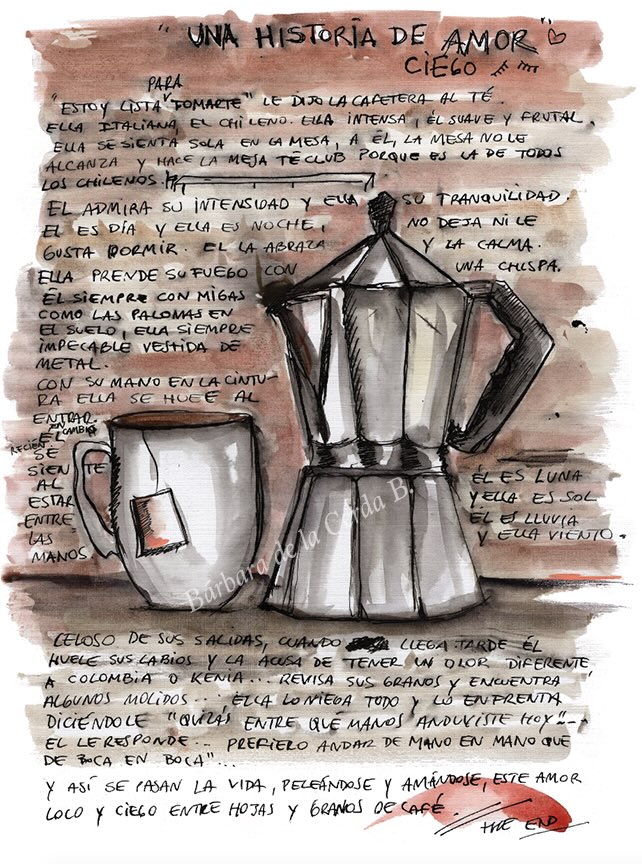 "UNA HISTORIA DE AMOR"
CIEGO
PARA
"ESTOY LISTA TOMARTE" LE DIJO LA CAFETERA AL TÉ.
ELLA ITALIANA, EL CHILENO. ELLA INTENSA, ÉL SUAVE Y FRUTAL.
ELLA SE SIENTA SOLA EN LA MESA, A ÉL, LA MESA NO LE
ALCANZA Y HACE LA MESA TÉ CLUB PORQUE ES LA DE TODOS
LOS CHILENOS.
EL ADMIRA SU INTENSIDAD Y ELLA SU TRANQUILIDAD.
EL ES DÍA Y ELLA ES NOCHE, NO DEJA NI LE
GUSTA DORMIR. EL LA ABRAZA Y LA CALMA.
ELLA PRENDE SU FUEGO CON UNA CHISPA.
ÉL SIEMPRE CON MIGAS
COMO LAS PALOMAS EN
EL SUELO, ELLA SIEMPRE
IMPECABLE VESTIDA DE
METAL.
CON SU MANO EN LA CINTU-
RA ELLA SE HUELE AL
ENTRAR.
EL EN CAMBIO
RECIEN
SE
SIENTE
AL
ESTAR
ENTRE
LAS
MANOS.
ÉL ES LUNA
Y ELLA ES SOL
ÉL ES LLUVIA
Y ELLA VIENTO.
Bárbara de la Cerda B.
CELOSO DE SUS SALIDAS, CUANDO LLEGA TARDE ÉL
HUELE SUS LABIOS Y LA ACUSA DE TENER UN OLOR DIFERENTE
A COLOMBIA O KENIA... REVISA SUS GRANOS Y ENCUENTRA
ALGUNOS MOLIDOS... ELLA LO NIEGA TODO Y LO ENFRENTA
DICIÉNDOLE "QUIZÁS ENTRE QUE MANOS ANDUVISTE HOY"...
EL LE RESPONDE... PREFIERO ANDAR DE MANO EN MANO QUE
DE BOCA EN BOCA"...
Y ASÍ SE PASAN LA VIDA, PELEÁNDOSE Y AMÁNDOSE, ESTE AMOR
LOCO Y CIEGO ENTRE HOJAS Y GRANOS DE CAFÉ.
THE END